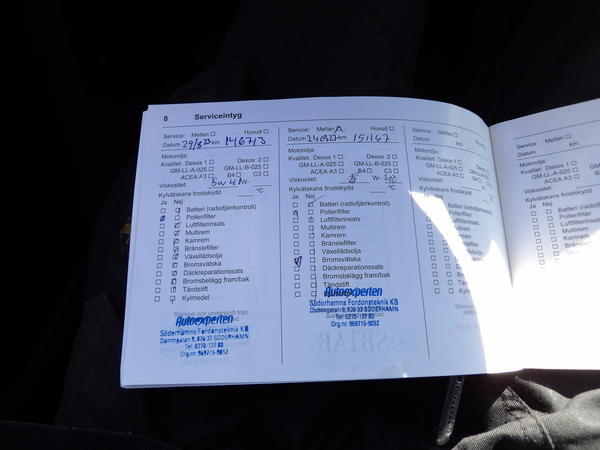 8 Serviceintyg
Service: Mellan Huvud
Datum 29/8 23 km 146713
Motorolja:
Kvalitet: Dexos 1 Dexos 2
GM-LL-A-025 GM-LL-B-025
ACEA A3 B4 C3
Viskositet: 5w 40
Kylvätskans frostskydd °C
Ja Nej
Batteri (radiofjärrkontroll)
Pollenfilter
Luftfilterinsats
Multirem
Kamrem
Bränslefilter
Växellådsolja
Bromsvätska
Däckreparationssats
Bromsbelägg fram/bak
Tändstift
Kylmedel
Stämpel och underskrift från
Autoexperten
Söderhamns Fordonsteknik KB
Dammgatan 9, 826 32 SÖDERHAMN
Tel: 0270-127 80
Org.nr. 969715-9052
Service: Mellan Huvud
Datum 240827 km 151167
Motorolja:
Kvalitet: Dexos 1 Dexos 2
GM-LL-A-025 GM-LL-B-025
ACEA A3 B4 C3
Viskositet: 5 W-
Kylvätskans frostskydd °C
Ja Nej
Batteri (radiofjärrkontroll)
Pollenfilter
Luftfilterinsats
Multirem
Kamrem
Bränslefilter
Växellådsolja
Bromsvätska
Däckreparationssats
Bromsbelägg fram/bak
Tändstift
Autoexperten
Söderhamns Fordonsteknik KB
Dammgatan 9, 826 32 SÖDERHAMN
Tel: 0270-127 80
Org.nr. 969715-9052
Service: Mellan Huvud
Datum km
Motorolja:
Kvalitet: Dexos 1 Dexos 2
GM-LL-A-025 GM-LL-B-025
ACEA A3 B4 C3
Viskositet:
Kylvätskans frostskydd °C
Ja Nej
Batteri (radiofjärrkontroll)
Pollenfilter
Luftfilterinsats
Multirem
Kamrem
Bränslefilter
Växellådsolja
Bromsvätska
Däckreparationssats
Bromsbelägg fram/bak
Tändstift
Kylmedel
Service: Mellan
Datum km
Motorolja:
Kvalitet: Dexos 1
GM-LL-A-025
ACEA A3
Viskositet:
Kylvätskans frostskydd
Ja Nej
Batteri
Pollenfilter
Luftfilterinsats
Multirem
Kamrem
Bränslefilter